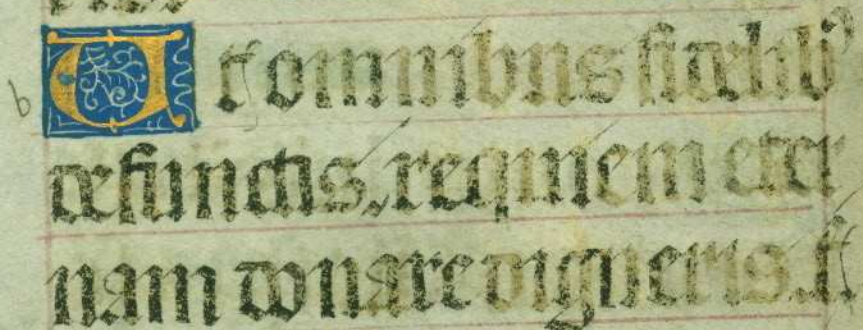 Ut omnibus fidelib᾽
defunctis, requiem eter
nam donare digneris. t̃.